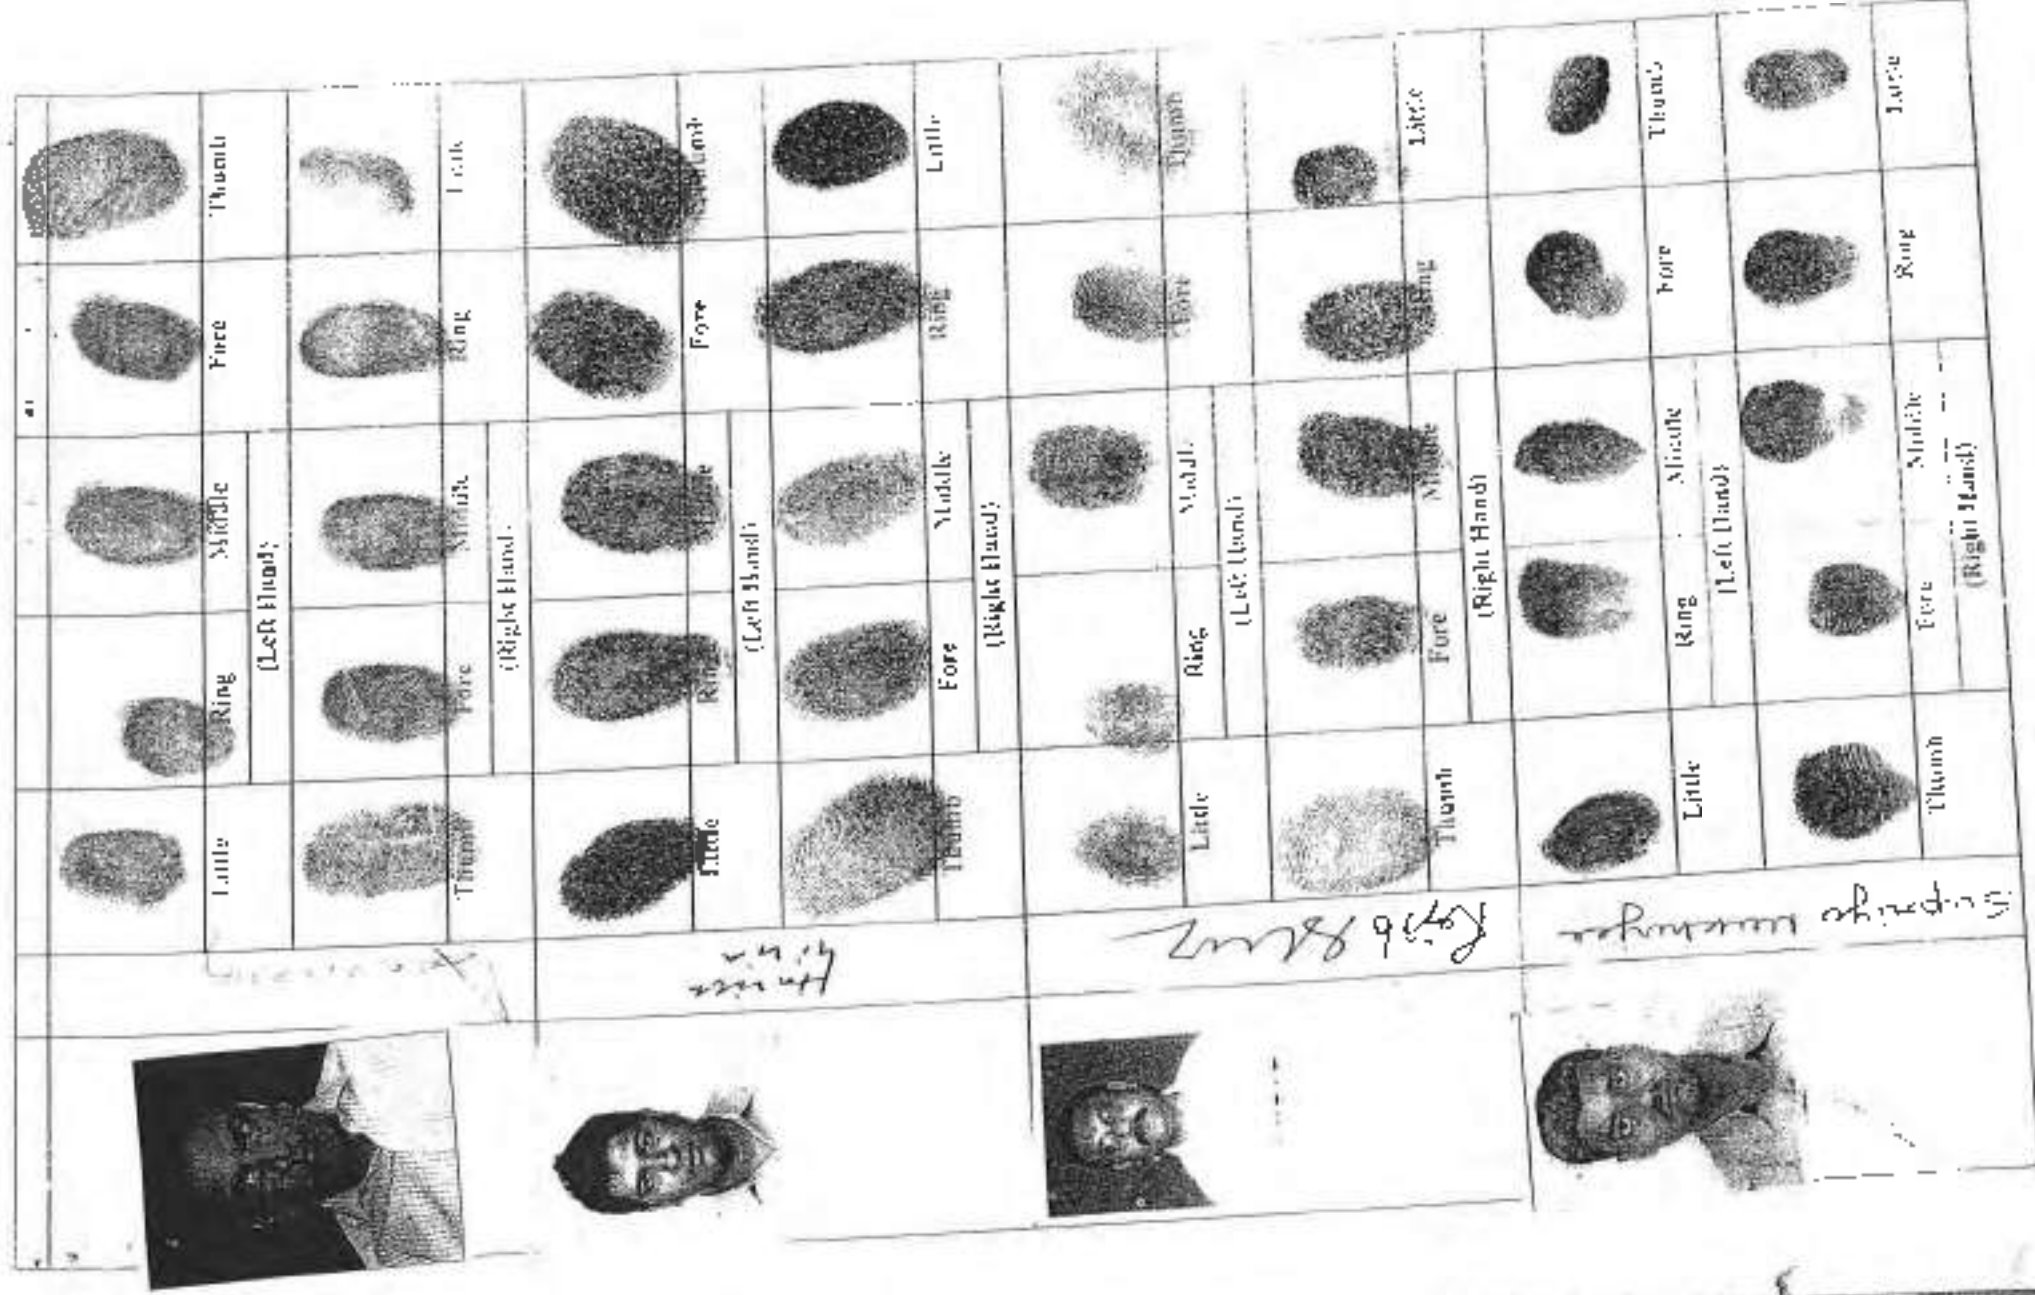 Little Ring Middle Fore Thumb
(Left Hand)
Thumb Fore Middle Ring Little
(Right Hand)
Little Ring Middle Fore Thumb
(Left Hand)
Thumb Fore Middle Ring Little
(Right Hand)
Rajib
Little Ring Middle Fore Thumb
(Left Hand)
Thumb Fore Middle Ring Little
(Right Hand)
Supriya Mukherjee
Little Ring Middle Fore Thumb
(Left Hand)
Thumb Fore Middle Ring Little
(Right Hand)